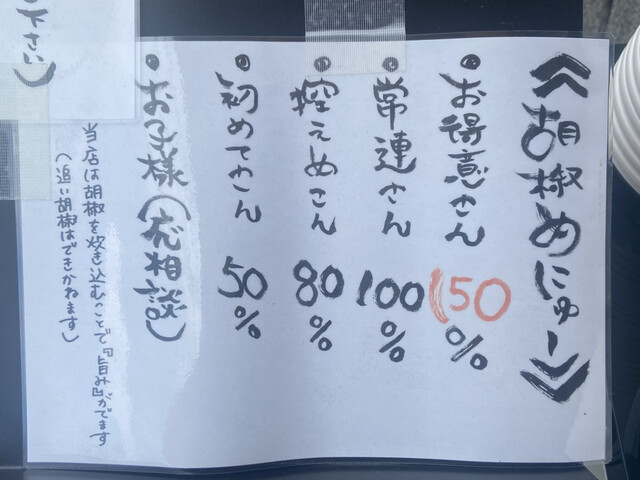 《胡椒めにゅー》
・お得意さん 150%
・常連さん 100%
・控えめさん 80%
・初めてさん 50%
・お子様(応相談)
当店は胡椒を炊き込むことで『旨み』がでます
(追い胡椒はできかねます)
下さい)